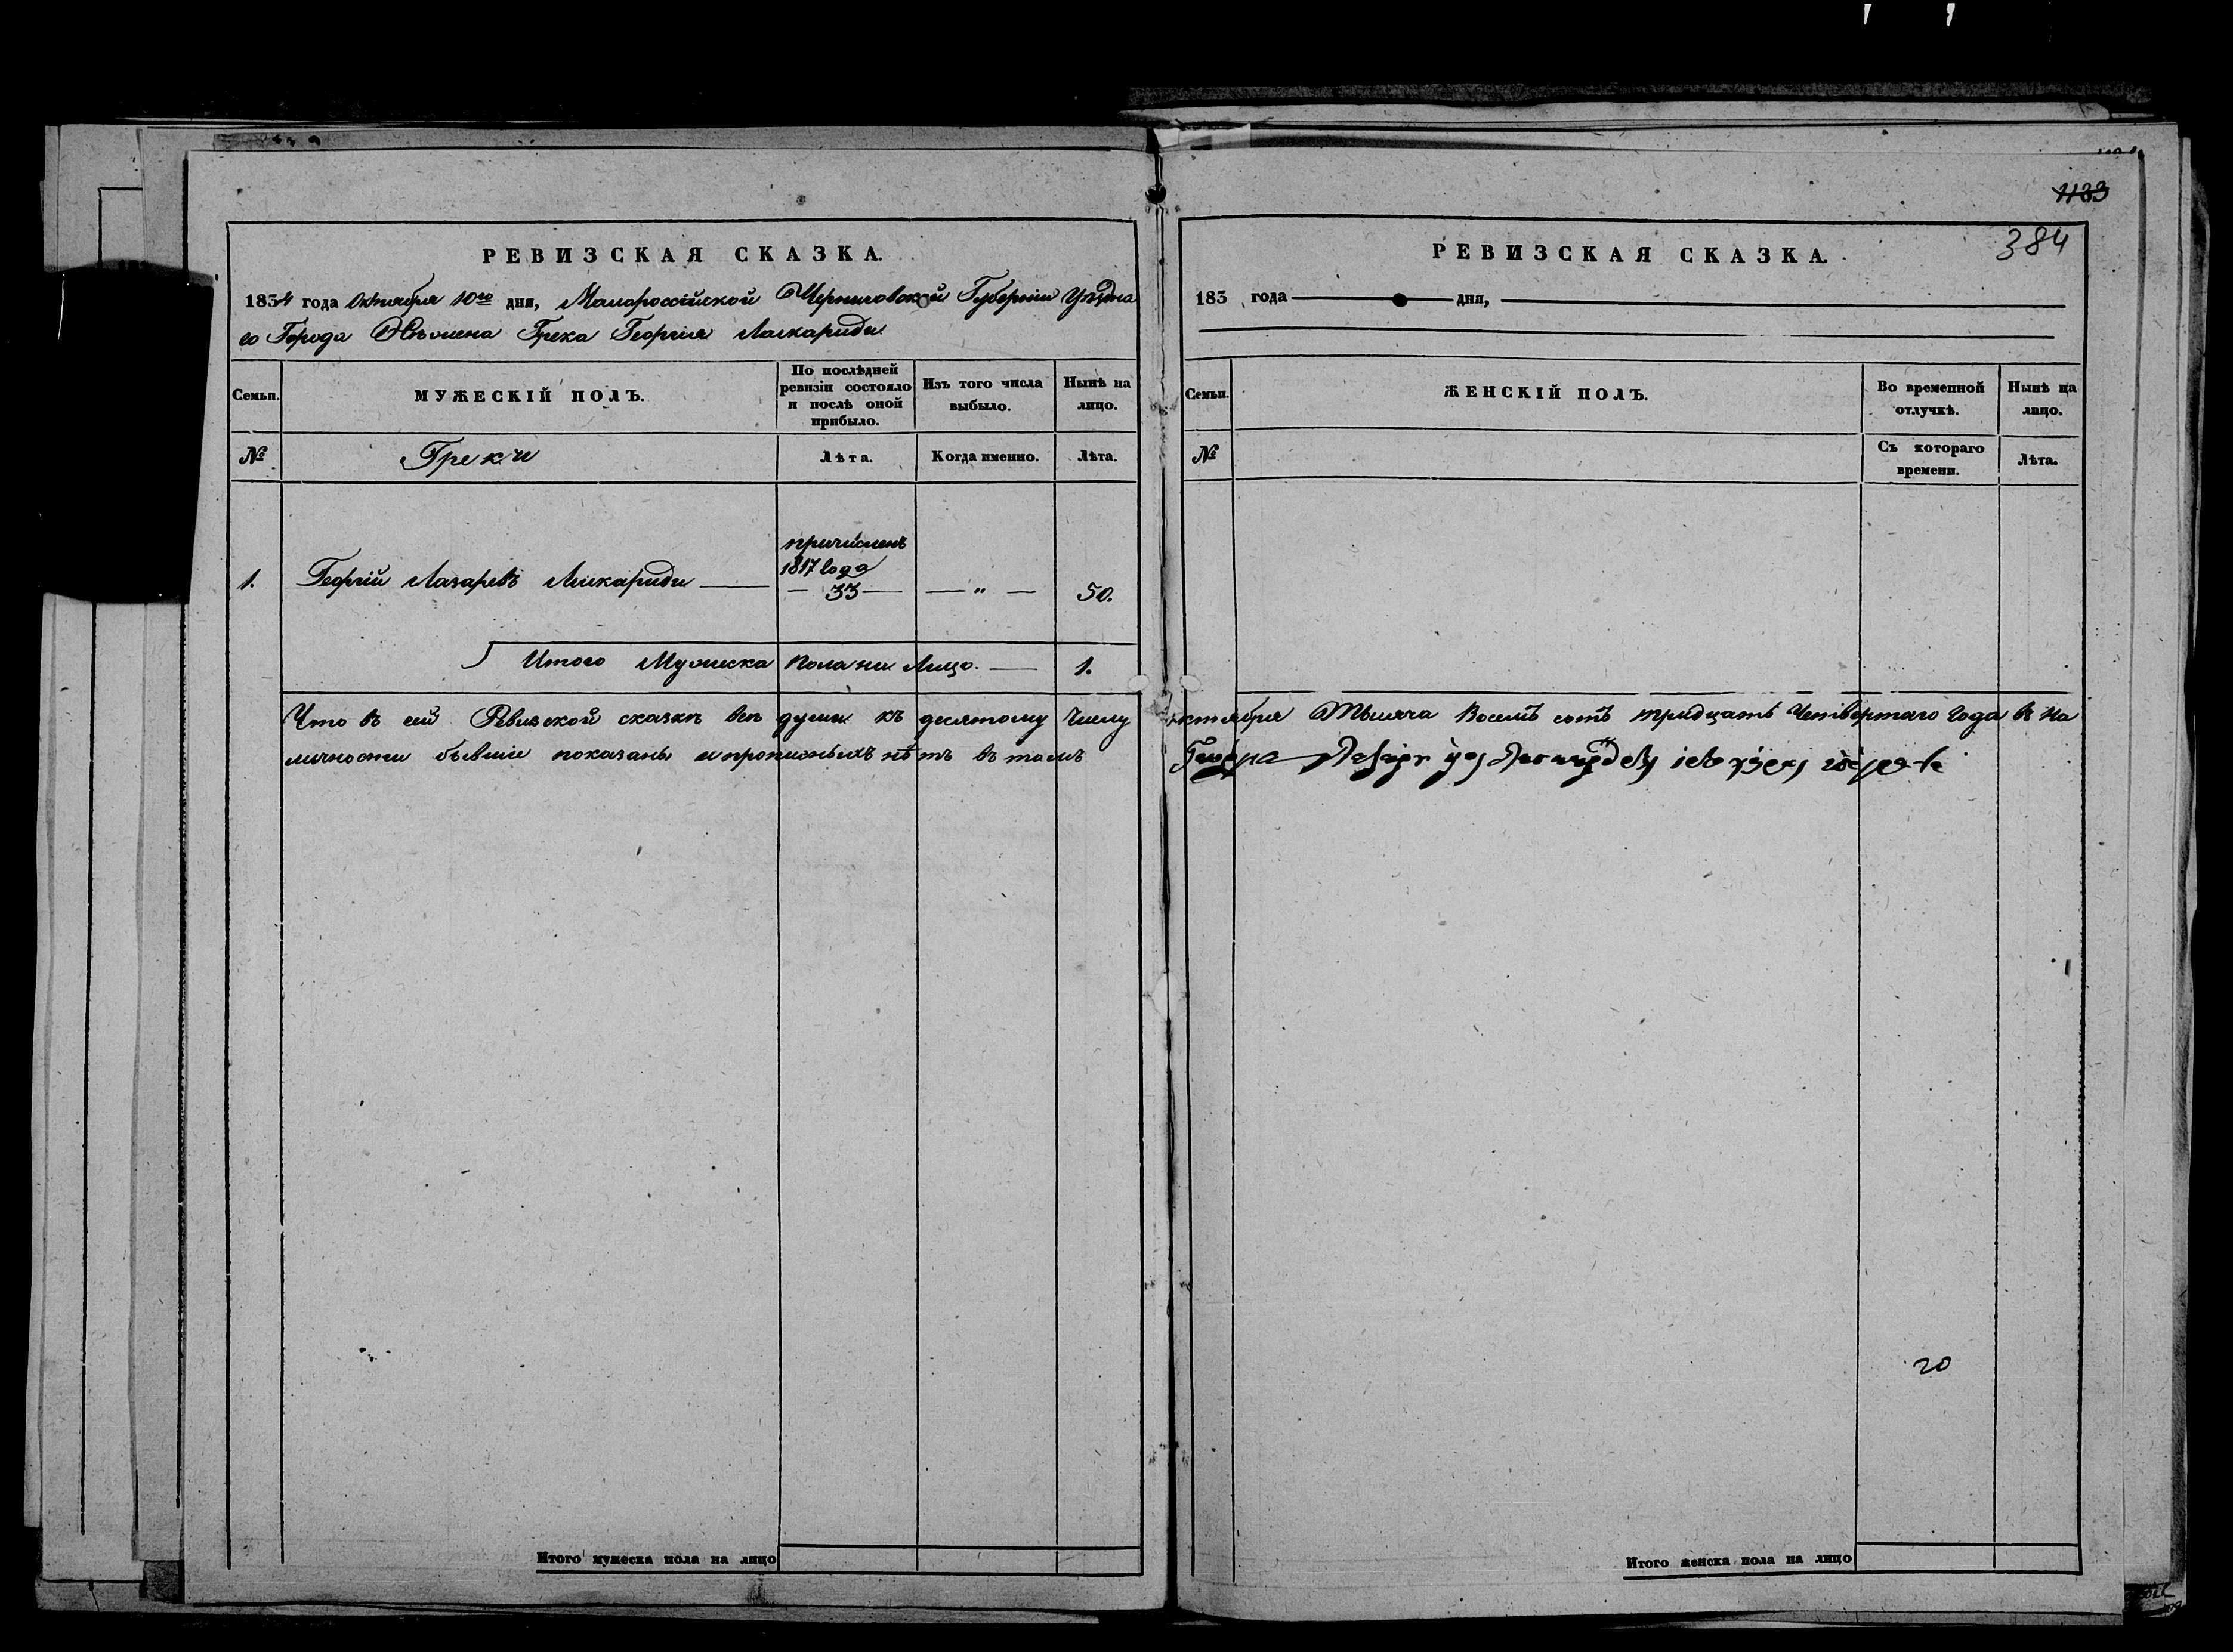 1183
384
РЕВИЗСКАЯ СКАЗКА.
1834 года Октября 10го дня, Малороссійской Черниговской Губерніи Уѣздна
го Города Нѣжина Грека Георгія Ласкариди
Семьи.
МУЖЕСКІЙ ПОЛЪ.
По послѣдней
ревизіи состояло
и послѣ оной
прибыло.
Изъ того числа
выбыло.
Нынѣ на
лицо.
№
Греки
Лѣта.
Когда именно.
Лѣта.
1.
Георгій Лазаревъ Ласкариди
причисленъ
1817 года
33
"
50.
Итого Мужеска пола на Лицо.
1.
Что въ сей Ревизской сказкѣ всѣ души къ десятому числу
личности бывшіе показаны и прописныхъ нѣтъ въ томъ
Итого мужеска пола на лицо
РЕВИЗСКАЯ СКАЗКА.
183 года дня,
Семьи.
ЖЕНСКІЙ ПОЛЪ.
Во временной
отлучкѣ.
Нынѣ на
лицо.
№
Съ котораго
времени.
Лѣта.
октября Тысяча восемъ сотъ тридцать Четвертаго Года въ на
20
Итого женска пола на лицо